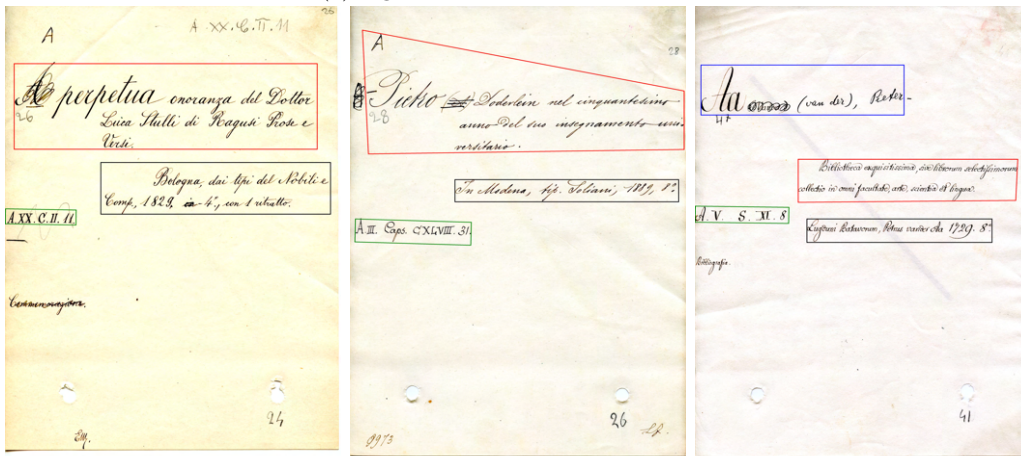 26
A
A.XX.C.II.11
A perpetua onoranza del Dottor
26
Luca Stulli di Ragusi Prose e
Versi.
Bologna, dai tipi del Nobili e
Comp, 1829, in 4°, con 1 ritratto.
A.XX.C.II.11
Commemorazioni.
24
A
28
Pietro Doderlein nel cinquantesimo
28
anno del suo insegnamento uni-
versitario.
In Modena, tip. Soliani, 1889, 8°
A. III. Caps. CXLVIII. 31.
26
9973
Aa (van der), Peter-
47
Bibliotheca exquisitissima, sive librorum selectissimorum
collectio in omni facultate, arte, scientia et lingua.
A. V. S. XI. 8
Lugduni Batavorum, Petrus vander Aa 1729. 8°
Bibliografia.
41